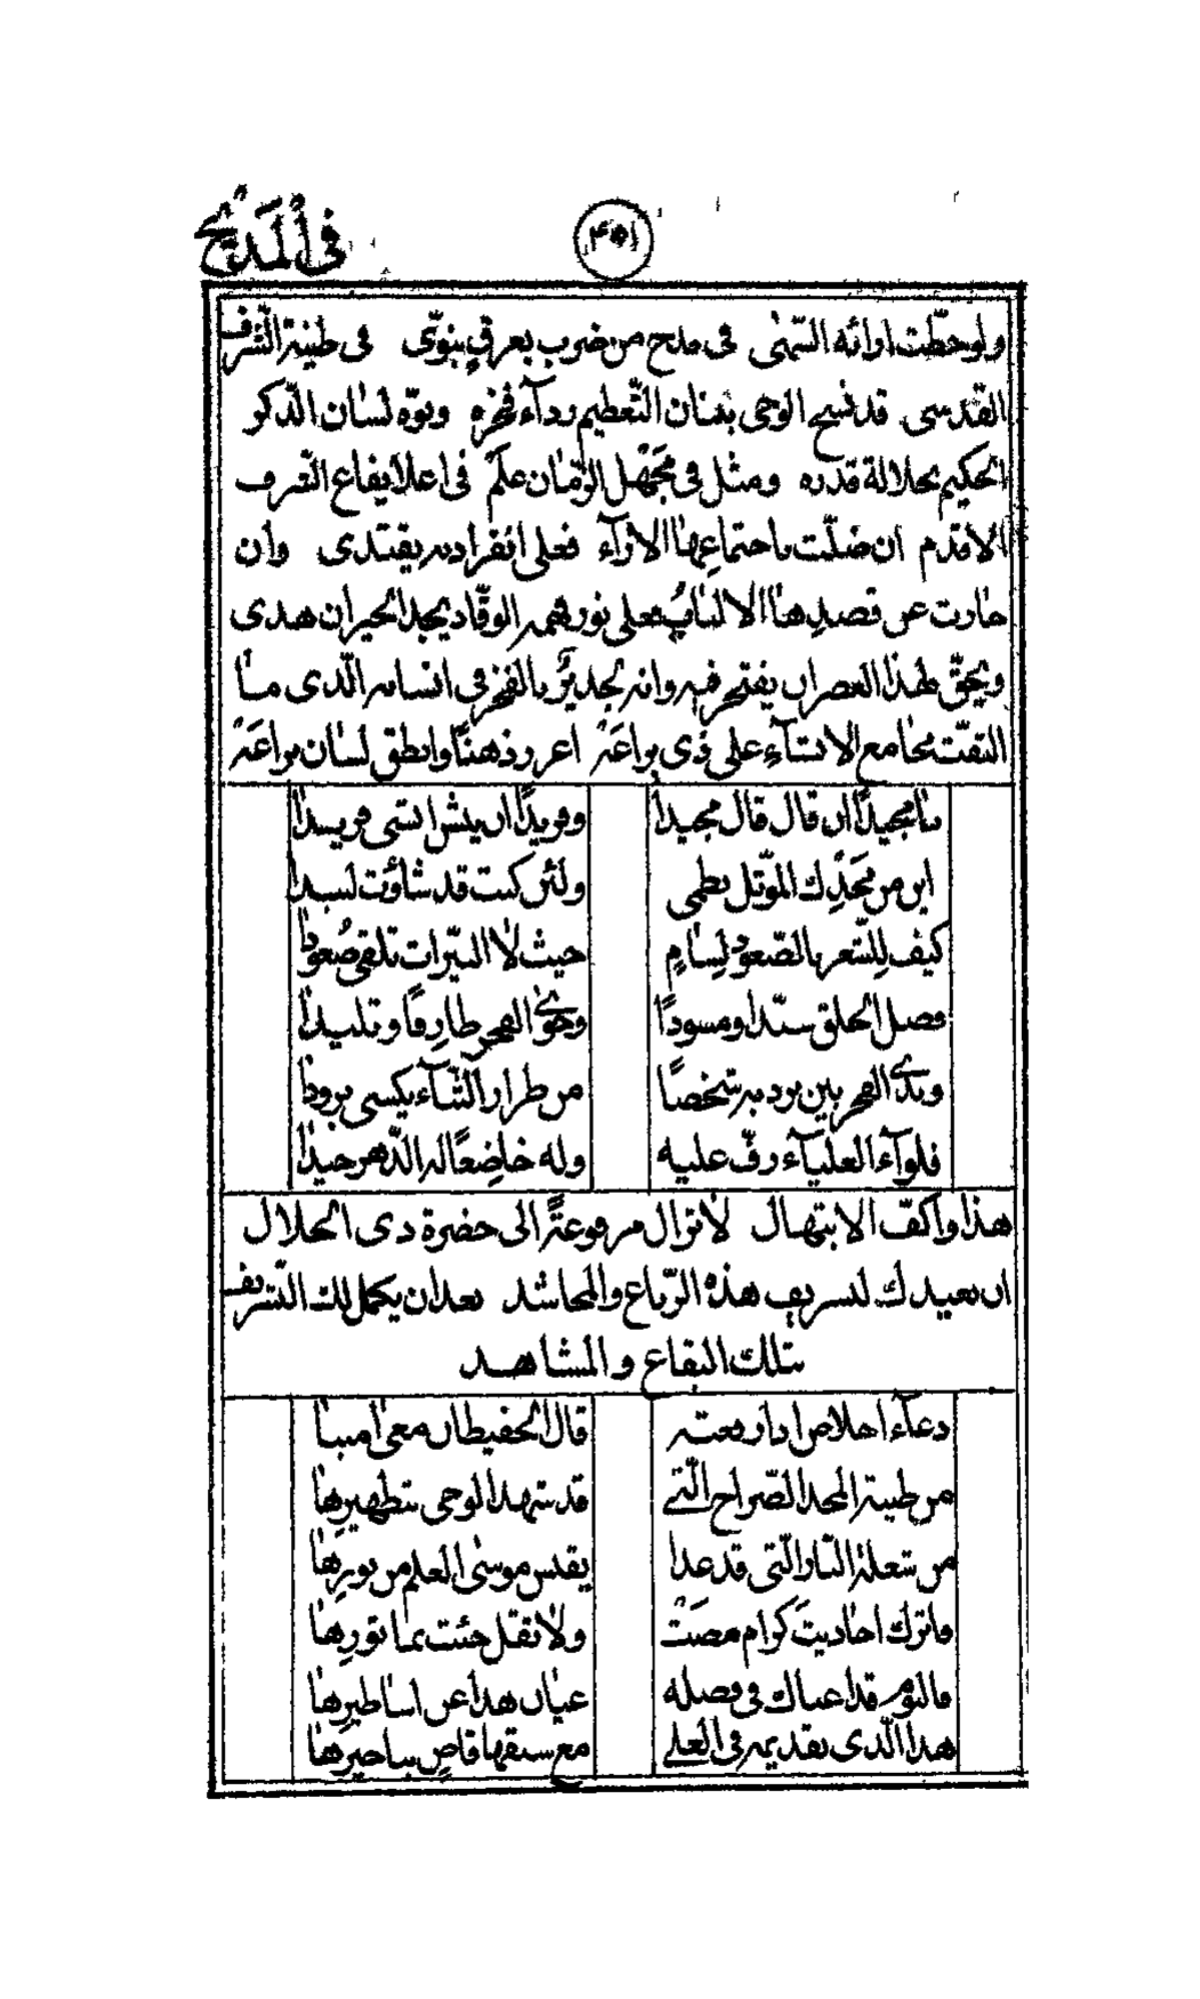 في المديح
٤٥١
ولو حطّت اوائه السّهٰى في مدح من ضرب بعرقٍ بنوّى في طينة الشّرف
القدسى قد نسج الوحى ببنان التّعظيم ردآء فخره ونوّه لسان الذّكر
الحكيم بجلالة قدره ومثل في مجهل الزّمان علم في اعلا يفاع الشّرف
الاقدم ان ضلّت باجتماعها الآرآء فعلى انفراده يقتدى وان
حارت عن قصدها الالباب فعلى نور فهمه الوقّاد يجد الحيران هدى
ويحقّ لهذا العصر ان يفتخر فيه وانه لجديرٌ بالفخر في انسانه الّذى ما
التفّت مجامع الانشآء على ذى براعة اعزر ذهنًا وانطق لسان براعة
يا مجيدًا ان قال قال مجيدا وفريدًا ان ينش انشى فريدا
اين من مجدك المؤثل نظمى ولئن كنت قد شأوت لبيدا
كيف للشّعر بالصّعود لسامٍ حيث لا النيّرات تلقى صُعودا
فضل الخلق سيّدا ومسودًا وحوى الفخر طارفًا وتليدا
وبدى الفخر بين برديه شخصًا من طراز الثّنآء يكسى برودا
فلوآء العليآء رفّ عليه وله خاضعًا له الدّهر جيدا
هذا واكفّ الابتهال لا تزال مرفوعةً الى حضرة ذى الجلال
ان يعيدك لتشريف هذه الرّباع والمحاشد بعد ان يكمل لك التّشريف
بتلك البقاع والمشاهد
دعآء اخلاص اذا رفعته قال الحفيظان معى امينا
من طينة المجد الصّراح الّتى قد شهد الوحى بتطهيرها
من شعلة النّار الّتى قد غدا يقبس موسى العلم من نورها
فاترك احاديث كرام مضت ولا تقل جئت بمأثورها
فاليوم قد اغناك في فضله عيان هذا عن اساطيرها
هذا الّذى تقديمه في العلى مع سبقها قاضٍ بتأخيرها